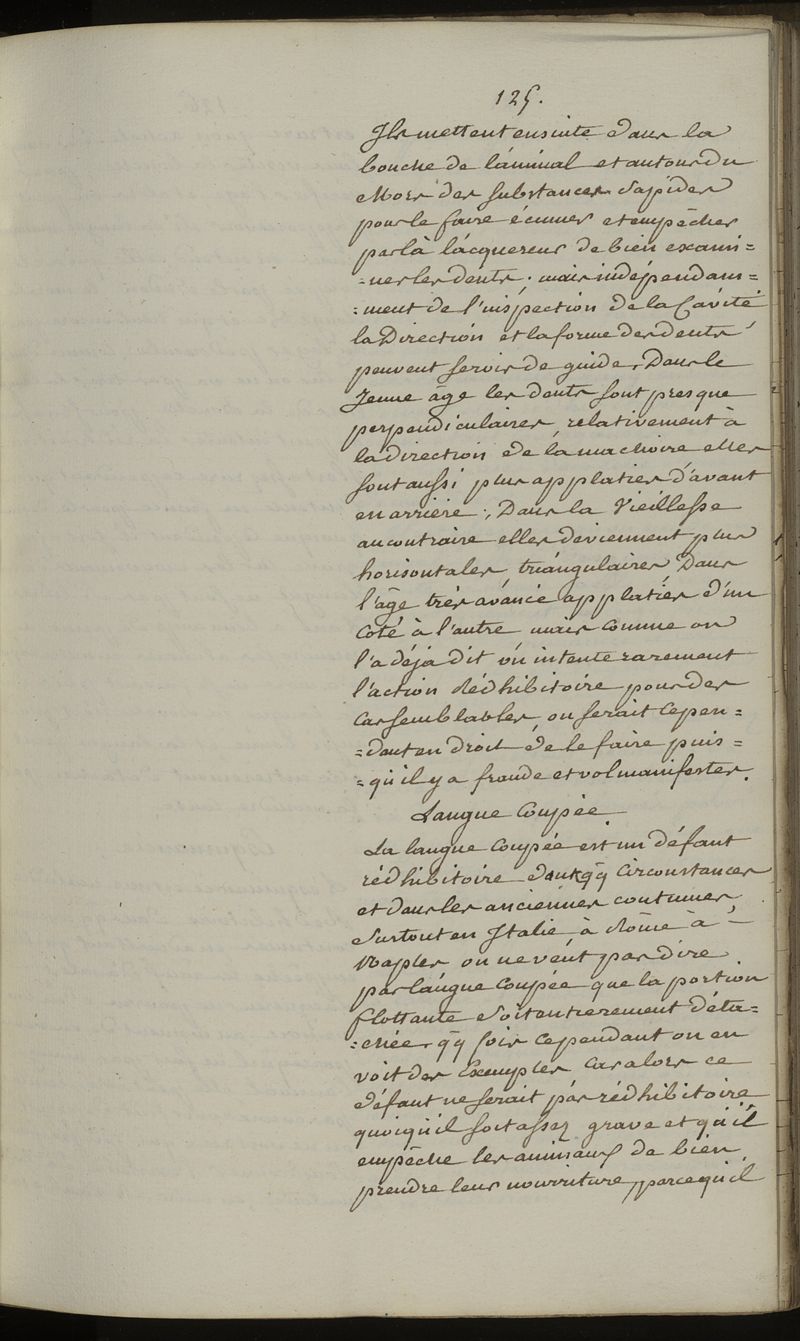 125.
Ils mettent ensuite dans la
bouche de l'animal et autour du
Mors des substances Sapides
pour le faire écumer et empêcher
par là l'acquereur de bien exami=
=ner les dents. mais indépendam=
=ment de l'inspection de la Cavité
la Direction et la forme des dents
peuvent servir de guide, Dans le
Jeune âge les dents sont presque
perpendiculaires, relativement à
la direction de la machoire elles
sont aussi plus applaties d'avant
en arriere, Dans la Vieillesse
au contraire elles deviennent plus
horisontales, triangulaires, Dans
l'âge très avancé applaties d'un
coté à l'autre, mais comme on
l'a déja dit on intente rarement
l'action Rédhibitoire pour des
cas semblables, on serait cepen=
=dant en droit de le faire puis=
=qu'il y a fraude et vol manifestes.
Langue Coupée.
La langue Coupée est un défaut
rédhibitoire dans qq Circonstances
et dans les anciennes coutumes,
Surtout en Italie à Rome à
Naples on ne veut pas dire
par langue Coupée que la portion
flottante Soit entierement déta=
=chée, qq fois cependant on en
voit des Exemples car alors ce
défaut ne serait pas rédhibitoire
quoiqu'il soit assez grave et qu'il
empêche les animaux de bien
prendre leur nourriture, parcequ'il